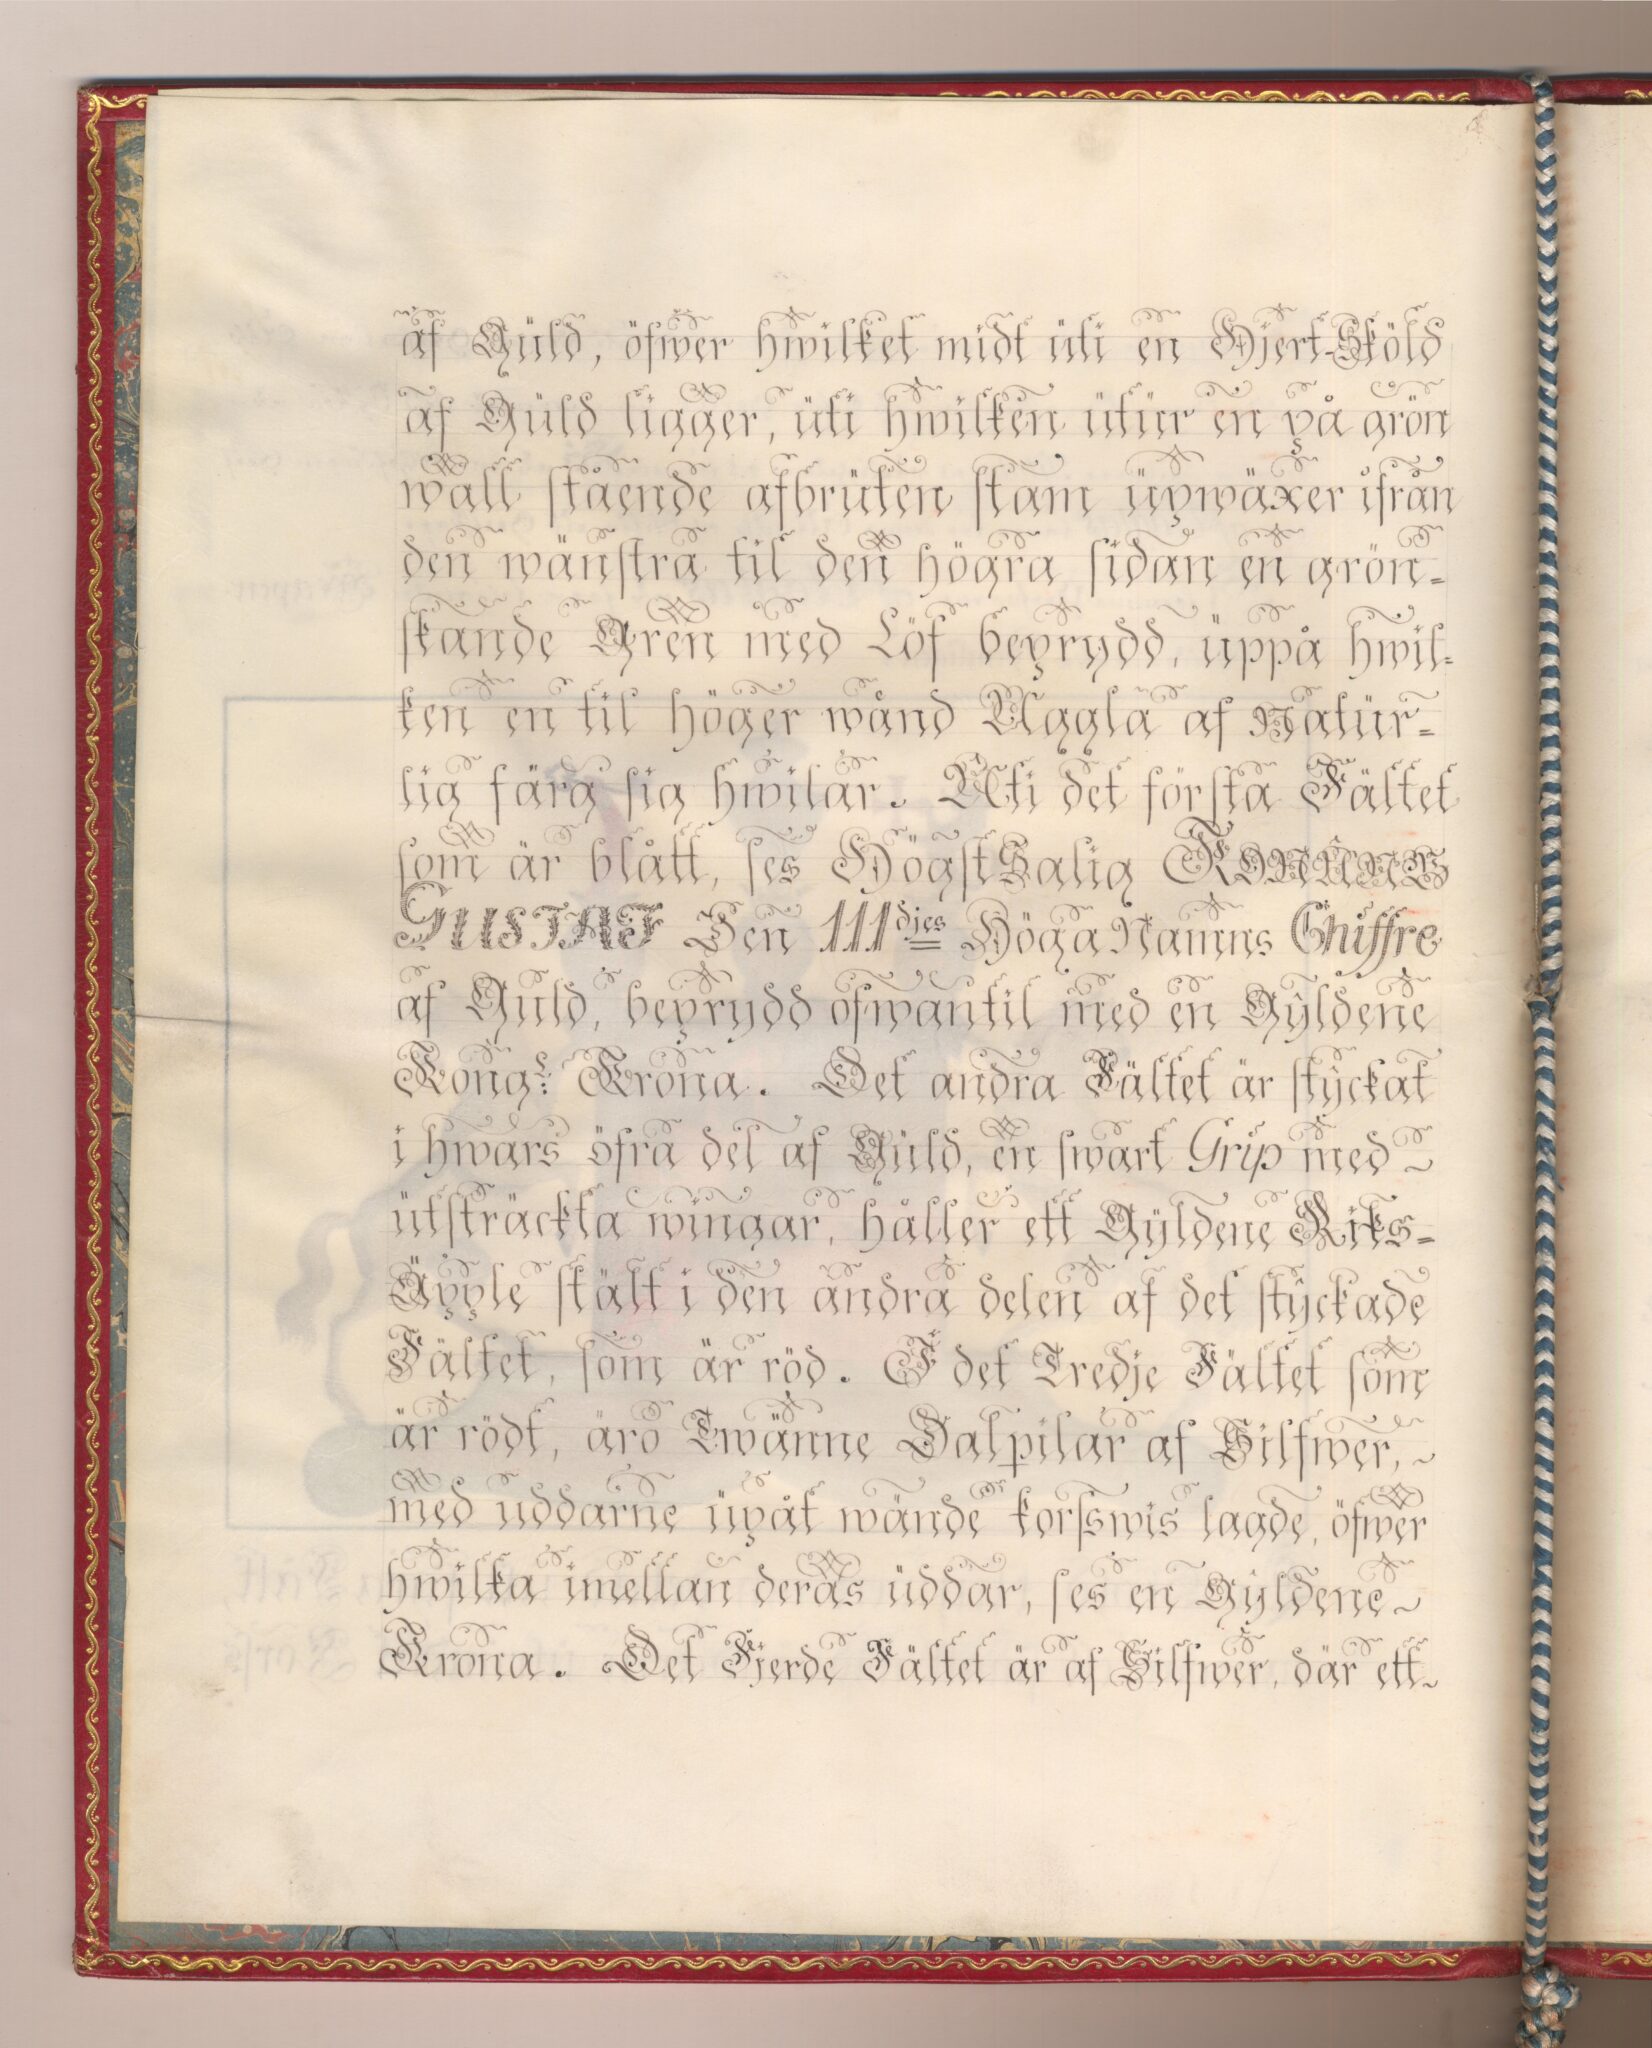 af Guld, öfwer hwilket midt uti en Hjert-Sköld
af Guld ligger, uti hwilken utur en på grön
wall stående afbruten stam upwäxer ifrån
den wänstra til den högra sidan en grön-
skande Gren med Löf beprydd, uppå hwil-
ken en til höger wänd Uggla af Natur-
lig färg sig hwilar. Uti det första Fältet
som är blått, ses HögstSalig KONUNG
GUSTAF Den III djes Höga Namns Chiffre
af Guld, beprydd ofwantil med en Gyldene
Kongl: Krona. Det andra Fältet är styckat
i hwars öfra del af Guld, en swart Grip med ~
utsträckta wingar, håller ett Gyldene Riks-
Äpple stält i den andra delen af det styckade
Fältet, som är röd. I det Tredje Fältet som
är rödt, äro Twänne Dalpilar af Silfwer, ~
med uddarne upåt wände korsswis lagde, öfwer
hwilka imellan deras uddar, ses en Gyldene ~
Krona. Det Fjerde Fältet är af Silfwer, där ett ~